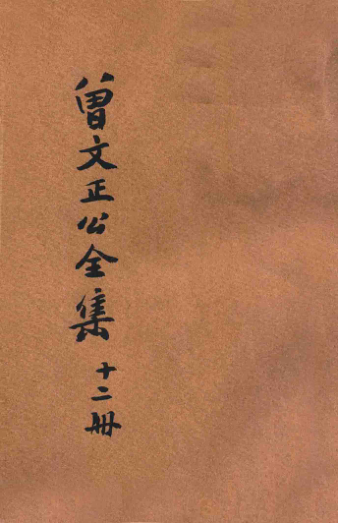 曾文正公全集 十二冊